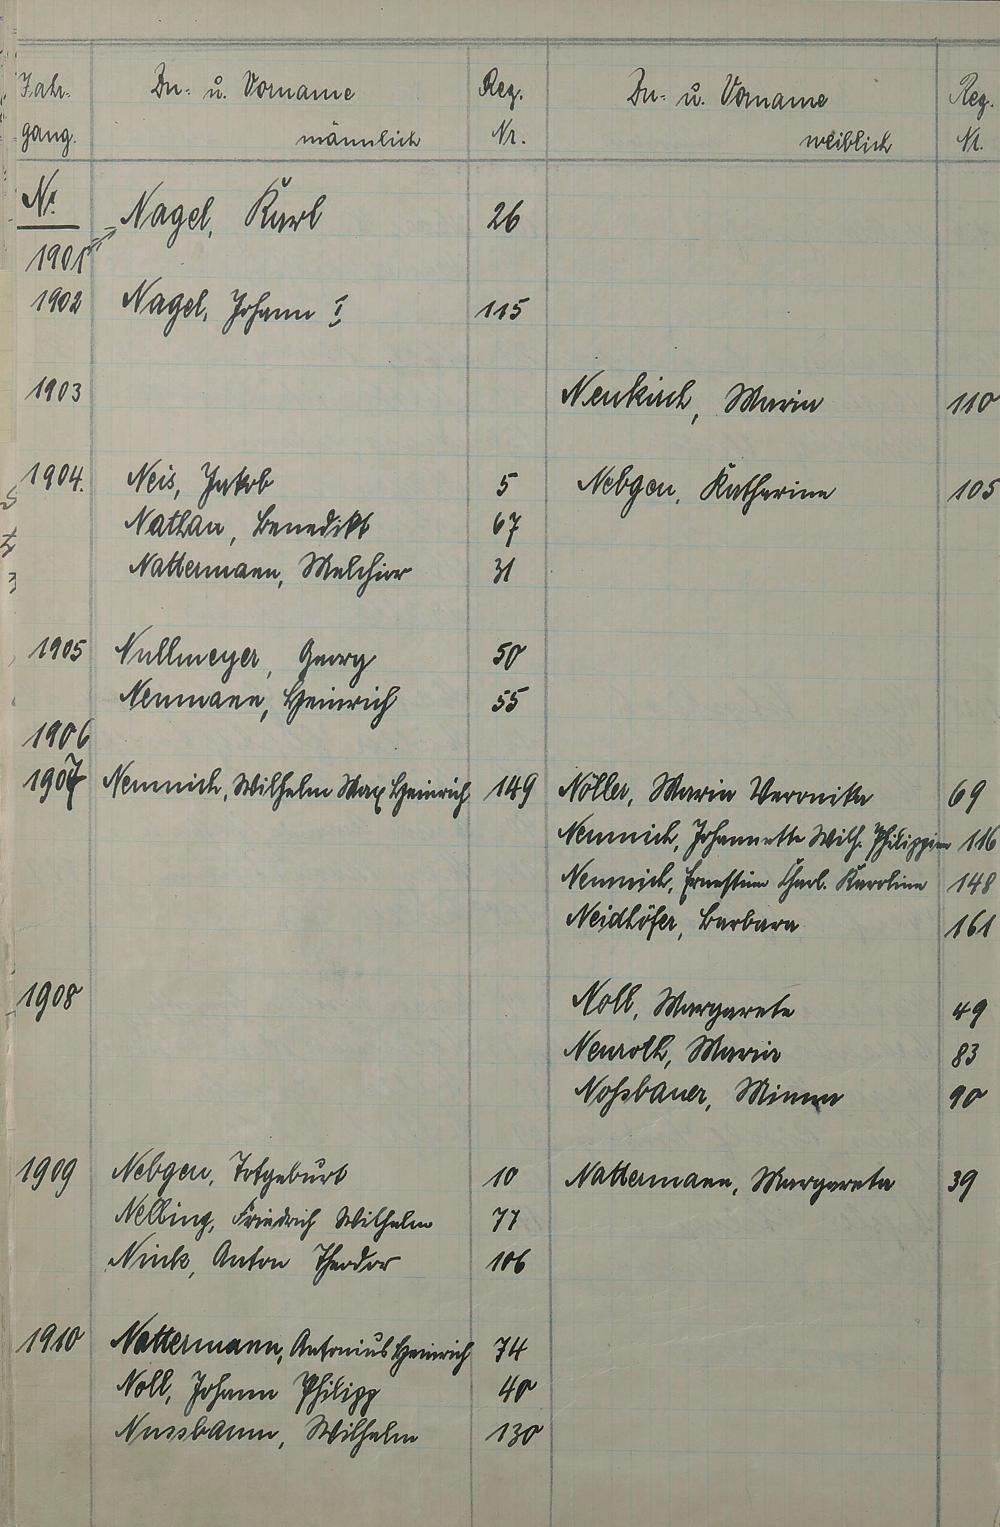 Jahr- Zu- u. Vorname Reg. Zu- u. Vorname Reg.
gang. männlich Nr. weiblich Nr.
N.
Nagel, Karl 26
1901
1902 Nagel, Johann I 115
1903 Neukirch, Maria 110
1904. Neis, Jakob 5 Nebgen, Katharina 105
Nathan, Benedikt 67
Nattermann, Melchior 31
1905 Nullmeyer, Georg 50
Neumann, Heinrich 55
1906
1907 Nemnich, Wilhelm Max Heinrich 149 Nöller, Maria Veronika 69
Nemnich, Johannette Wilh. Philippine 116
Nemnich, Ernestine Charl. Karoline 148
Neidhöfer, Barbara 161
1908 Noll, Margarete 49
Neuroth, Maria 83
Noßbauer, Minna 90
1909 Nebgen, Totgeburt 10 Nattermann, Margareta 39
Nelbing, Friedrich Wilhelm 77
Nink, Anton Theodor 106
1910 Nattermann, Antonius Heinrich 74
Noll, Johann Philipp 40
Nussbaum, Wilhelm 130